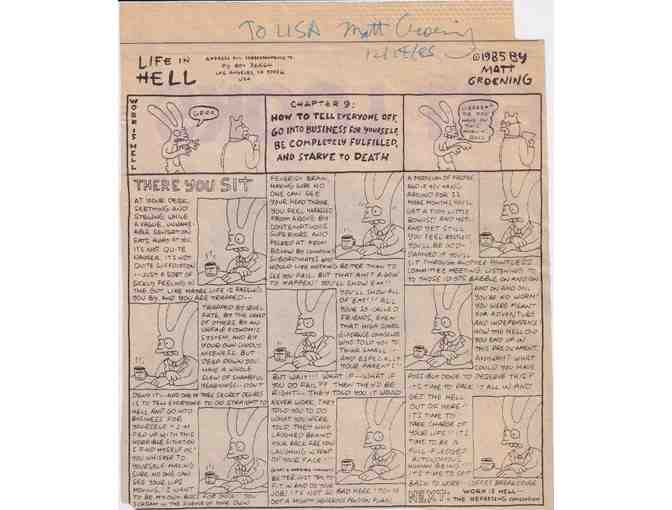 TO LISA Matt Groening
12/18/85
LIFE IN
HELL
ADDRESS ALL CORRESPONDENCE TO
PO BOX
LOS ANGELES, CA
USA
©1985 BY
MATT
GROENING
WORK IS HELL
GRRR.
CHAPTER 9:
HOW TO TELL EVERYONE OFF,
GO INTO BUSINESS FOR YOURSELF,
BE COMPLETELY FULFILLED,
AND STARVE TO DEATH
THERE YOU SIT
AT YOUR DESK,
SEETHING AND
STEWING WHILE
A VAGUE, UNNAME-
ABLE SENSATION
EATS AWAY AT YOU.
IT'S NOT QUITE
HUNGER. IT'S NOT
QUITE SUFFOCATION
--JUST A SORT OF
SICKLY FEELING IN
THE GUT, LIKE MAYBE LIFE IS PASSING
YOU BY, AND YOU ARE TRAPPED--
TRAPPED BY CRUEL
FATE, BY THE GREED
OF OTHERS, BY AN
UNFAIR ECONOMIC
SYSTEM, AND BY
YOUR OWN GUTLESS
NICENESS. BUT
DEEP DOWN YOU
HAVE A WHOLE
SLEW OF SHAMEFUL
YEARNINGS--DON'T
DENY IT--AND ONE OF THESE SECRET DESIRES
IS TO TELL EVERYONE TO GO STRAIGHT TO
HELL AND GO INTO
BUSINESS FOR
YOURSELF. "I AM
FED UP WITH THIS
HORRIBLE SITUATION
I FIND MYSELF IN,"
YOU WHISPER TO
YOURSELF, MAKING
SURE NO ONE CAN
SEE YOUR LIPS
MOVING. "I WANT
TO BE MY OWN BOSS FOR ONCE!" YOU
SCREAM IN THE SILENCE OF YOUR OWN
FEVERISH BRAIN,
MAKING SURE NO
ONE CAN SEE
YOUR HEAD THROB.
YOU FEEL HARASSED
FROM ABOVE BY
CONTEMPTUOUS
SUPERIORS AND
PECKED AT FROM
BELOW BY LOWLY
SUBORDINATES WHO
WOULD LIKE NOTHING BETTER THAN TO
SEE YOU FAIL. BUT THAT AIN'T GONNA
HAPPEN! YOU'LL SHOW 'EM!!
YOU'LL SHOW ALL
OF 'EM!!! ALL
YOUR SO-CALLED
FRIENDS, EVEN
THAT HIGH SCHOOL
GUIDANCE COUNSELOR
WHO TOLD YOU TO
THINK SMALL
--AND ESPECIALLY
YOUR PARENTS!
BUT WAIT!!! WHAT IF--WHAT IF
YOU DO FAIL?? THEN THEY'D BE
RIGHT-- THEY TOLD YOU IT WOULD
NEVER WORK, THEY
TOLD YOU TO DO
WHAT YOU WERE
TOLD, THEY WHO
LAUGHED BEHIND
YOUR BACK ARE NOW
LAUGHING IN FRONT
OF YOUR FACE!!
BETTER JUST TRY TO
FIT IN AND DO YOUR
JOB! IT'S NOT SO BAD HERE! YOU'VE
GOT A MIGHTY GENEROUS PENSION PLAN!
A MODICUM OF
AND IF YOU HANG
AROUND FOR 22
MORE MONTHS YOU'LL
GET A TINY LITTLE
BONUS!! AND YET--
AND YET STILL
YOU FEEL RESTLESS.
YOU'LL BE GOD-
DAMNED IF YOU'LL
SIT THROUGH ANOTHER POINTLESS
COMMITTEE MEETING LISTENING
TO THOSE IDIOTS BABBLE ON AND ON
AND ON AND ON.
YOU'RE NO WORM!
YOU WERE MEANT
FOR ADVENTURE
AND INDEPENDENCE!
HOW THE HELL DID
YOU END UP IN
THIS PREDICAMENT,
ANYWAY? WHAT
COULD YOU HAVE
POSSIBLY DONE TO DESERVE THIS?
IT'S TIME TO PACK IT ALL IN AND
GET THE HELL
OUT OF HERE!
IT'S TIME TO
TAKE CHARGE OF
YOUR LIFE!! IT'S
TIME TO BE A
FULL-FLEDGED
AUTONOMOUS
HUMAN BEING!
IT'S TIME TO GET
BACK TO WORK--COFFEE BREAK'S OVER.
NEXT: WORK IS HELL--
THE REFRESHING CONCLUSION